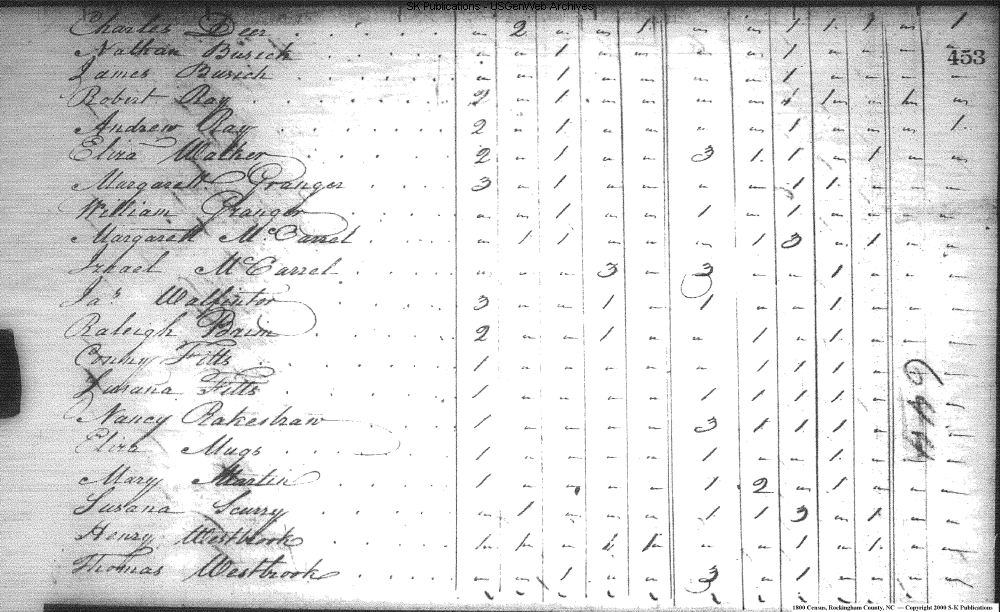 SK Publications - USGenWeb Archives
Charles Deer . . . . " 2 " " 1 " " 1 1 1 " 1
Nathan Busick . . . . " " 1 " " " " 1 " " " "
453
James Busick . . . . " " 1 " " " " 1 " " " "
Robert Ray . . . . 2 " 1 " " " " 1 1 " 1 "
Andrew Ray . . . . 2 " 1 " " " " 1 " " " 1
Eliza Walker . . . . 2 " 1 " " 3 1 1 " 1 " "
Margarett Granger . . . . 3 " 1 " " " " 1 1 " " "
William Granger . . . . " " 1 " " 1 " 1 " " " "
Margarett McCarrel . . . . " 1 1 " " " 1 3 " 1 " "
Izhael McCarrel . . . . " " " 3 " 3 " " 1 " " "
Jas Walpintor . . . . 3 " " 1 " 1 " " 1 " " "
Raleigh . . . . 2 " " 1 " " 1 " 1 " " "
Fitts . . . . 1 " " " " " 1 1 1 "
Susana Fitts . . . . 1 " " " " 1 1 1 1 "
Nancy Rakestraw . . . . 1 " " " " 3 1 1 1 "
Eliza Mugs . . . . 1 " " " " 1 " " 1 "
Mary Martin . . . . 1 " " " " 1 2 " 1 "
Susana Scurry . . . . " 1 " " " 1 1 3 " 1
Henry Westbrook . . . . 1 1 " 1 1 " " 1 " 1 "
Thomas Westbrook . . . . " " 1 " " 3 " 1 " " "
1800 Census, Rockingham County, NC — Copyright 2000 S-K Publications